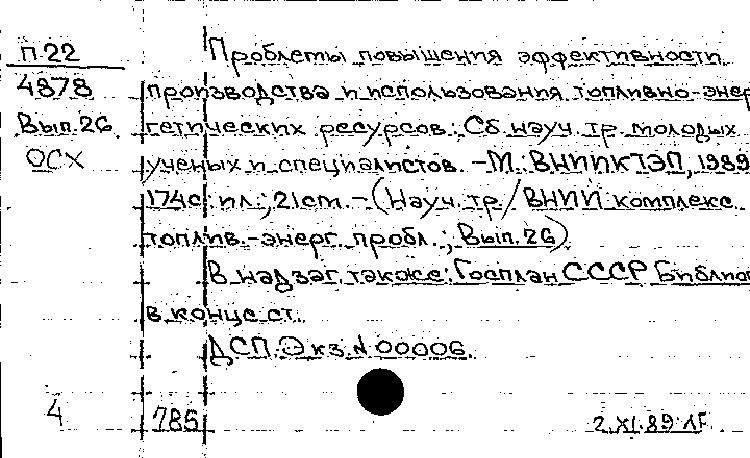 П.22
4878
Вып.26
ОСХ
Проблемы повышения эффективности
производства и использования топливно-энер
гетических ресурсов: Сб. науч. тр. молодых
ученых и специалистов. - М.: ВНИИКТЭП, 1989
174с.: ил.; 21 см. - (Науч. тр. / ВНИИ комплекс.
топлив.-энерг. пробл.; Вып. 26)
В надзаг. также: Госплан СССР. Библио
в конце ст.
ДСП. Экз. N 00006.
4
785
2.XI.89